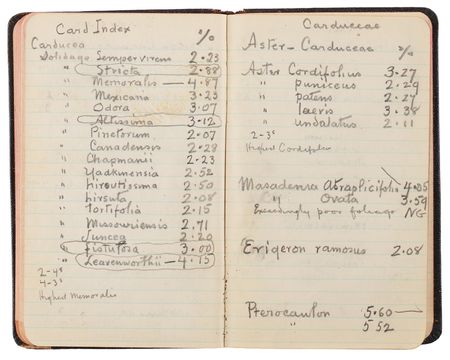 Card Index
%
Carducea
Solidago Sempervirens 2.23
" Stricta 2.88
" Memoralis — 4.87
" Mexicana 3.23
" Odora 3.07
" Altissima 3.12
" Pinetorum 2.07
" Canadensis 2.28
" Chapmanii 2.23
" Yadkinensis 2.52
" hirsutissima 2.50
" hirsuta 2.08
" Tortifolia 2.15
" Missouriensis 2.71
" Juncea 2.20
" Fistulosa 3.00
" Leavenworthii — 4.15
2-4s
4-3s
Highest Memoralis
Carduceae
Aster - Carduceae %
Aster Cordifolius 3.27
" puniceus 2.29
" patens 2.27
" laevis 3.38
" undulatus 2.11
2-3s
Highest Cordifolius
Masadenra Atraplicifolia 4.05
" Ovata 3.59
Exceedingly poor foliage NG
Erigeron ramosus 2.08
Pterocaulon 5.60
" 5.52